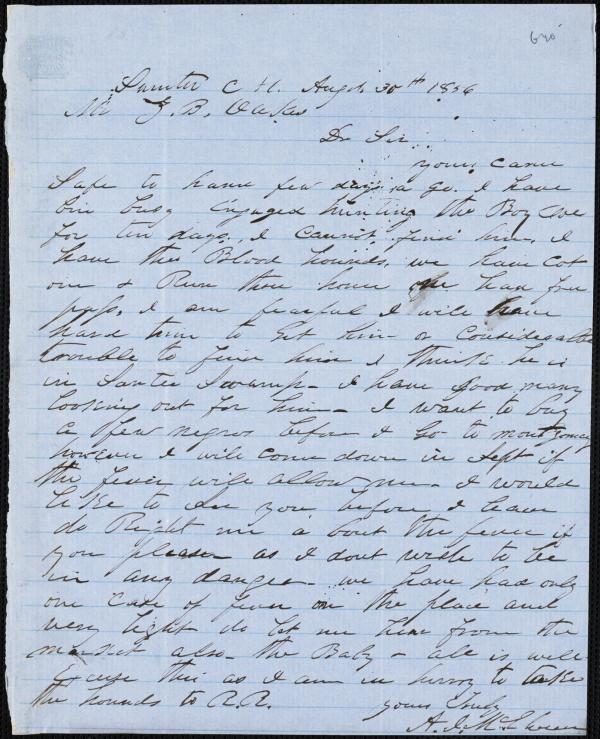 640
Sumter C H. Augst 30th 1856
Mr Z. B. Oakes
Dr Sir
yours came
Safe to hand few days a go. I have
bin busy Engaged hunting the Boy
for ten days, I cannot find him, I
have the Blood hounds, we have cot
one & Run three home one has free
pass, I am fearful I will have
hard time to Get him or Considerable
trouble to find him I think he is
in Santee Swamp - I have good many
looking out for him - I want to buy
a few negros before I Go to montgomey
however I will come down in sept if
the fever will allow me - I would
like to See you before I leave
do Right me a bout the fever if
you please as I dont wish to be
in any danger - we have had only
one case of fever on the place and
very light do let me hear from the
market also - the Baby & all is well
Excuse this as I am in hurry to take
the hounds to R. R.
yours Truly
A. J. McElveen